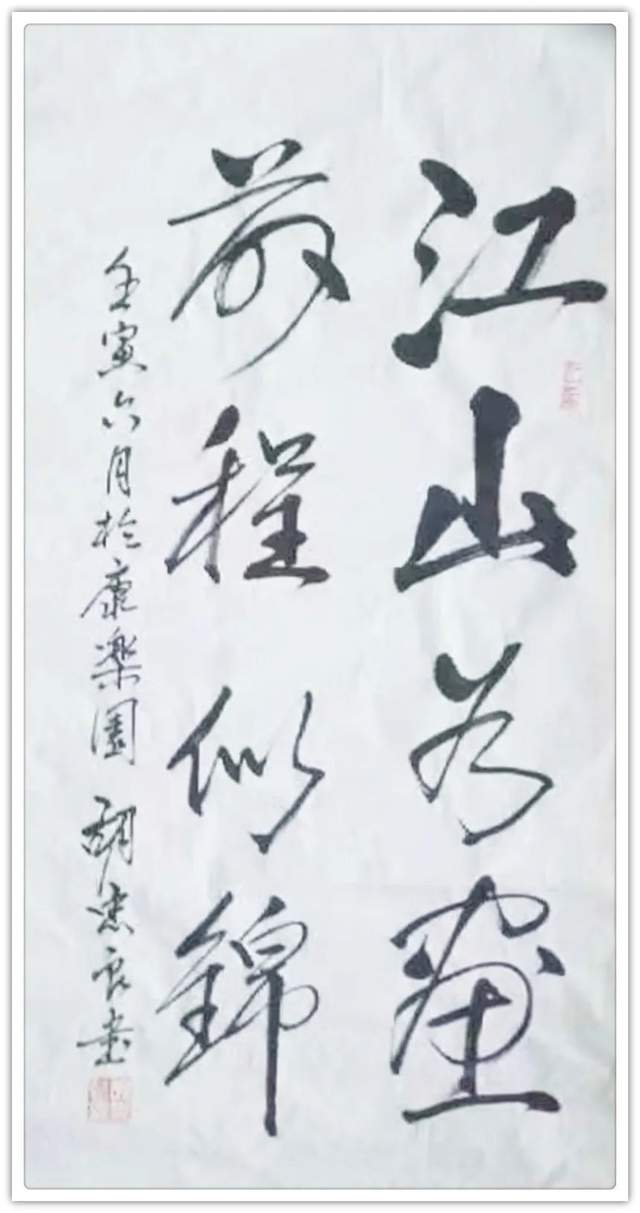 江山如畫
前程似錦
壬寅六月於康樂園 胡忠良書